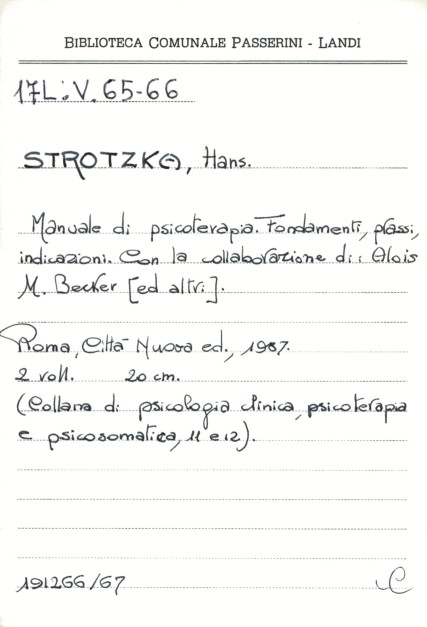 BIBLIOTECA COMUNALE PASSERINI - LANDI
17L.V. 65-66
STROTZKA, Hans.
Manuale di psicoterapia. Fondamenti, prassi,
indicazioni. Con la collaborazione di: Alois
M. Becker [ed altri].
Roma, Città Nuova ed., 1987.
2 voll. 20 cm.
(Collana di psicologia clinica, psicoterapia
e psicosomatica, 11 e 12).
191266/67
C